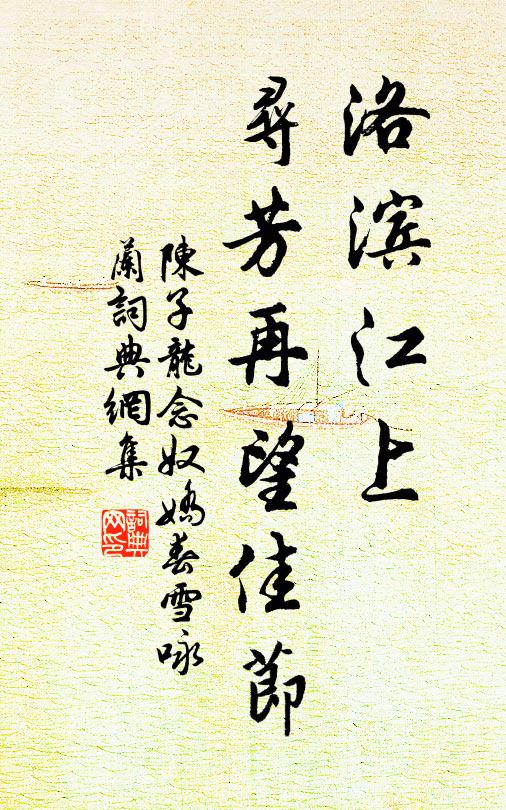 洛滨江上
尋芳再望佳節
陳子龍念奴嬌春雪咏
蘭詞典網集
詞典
网印